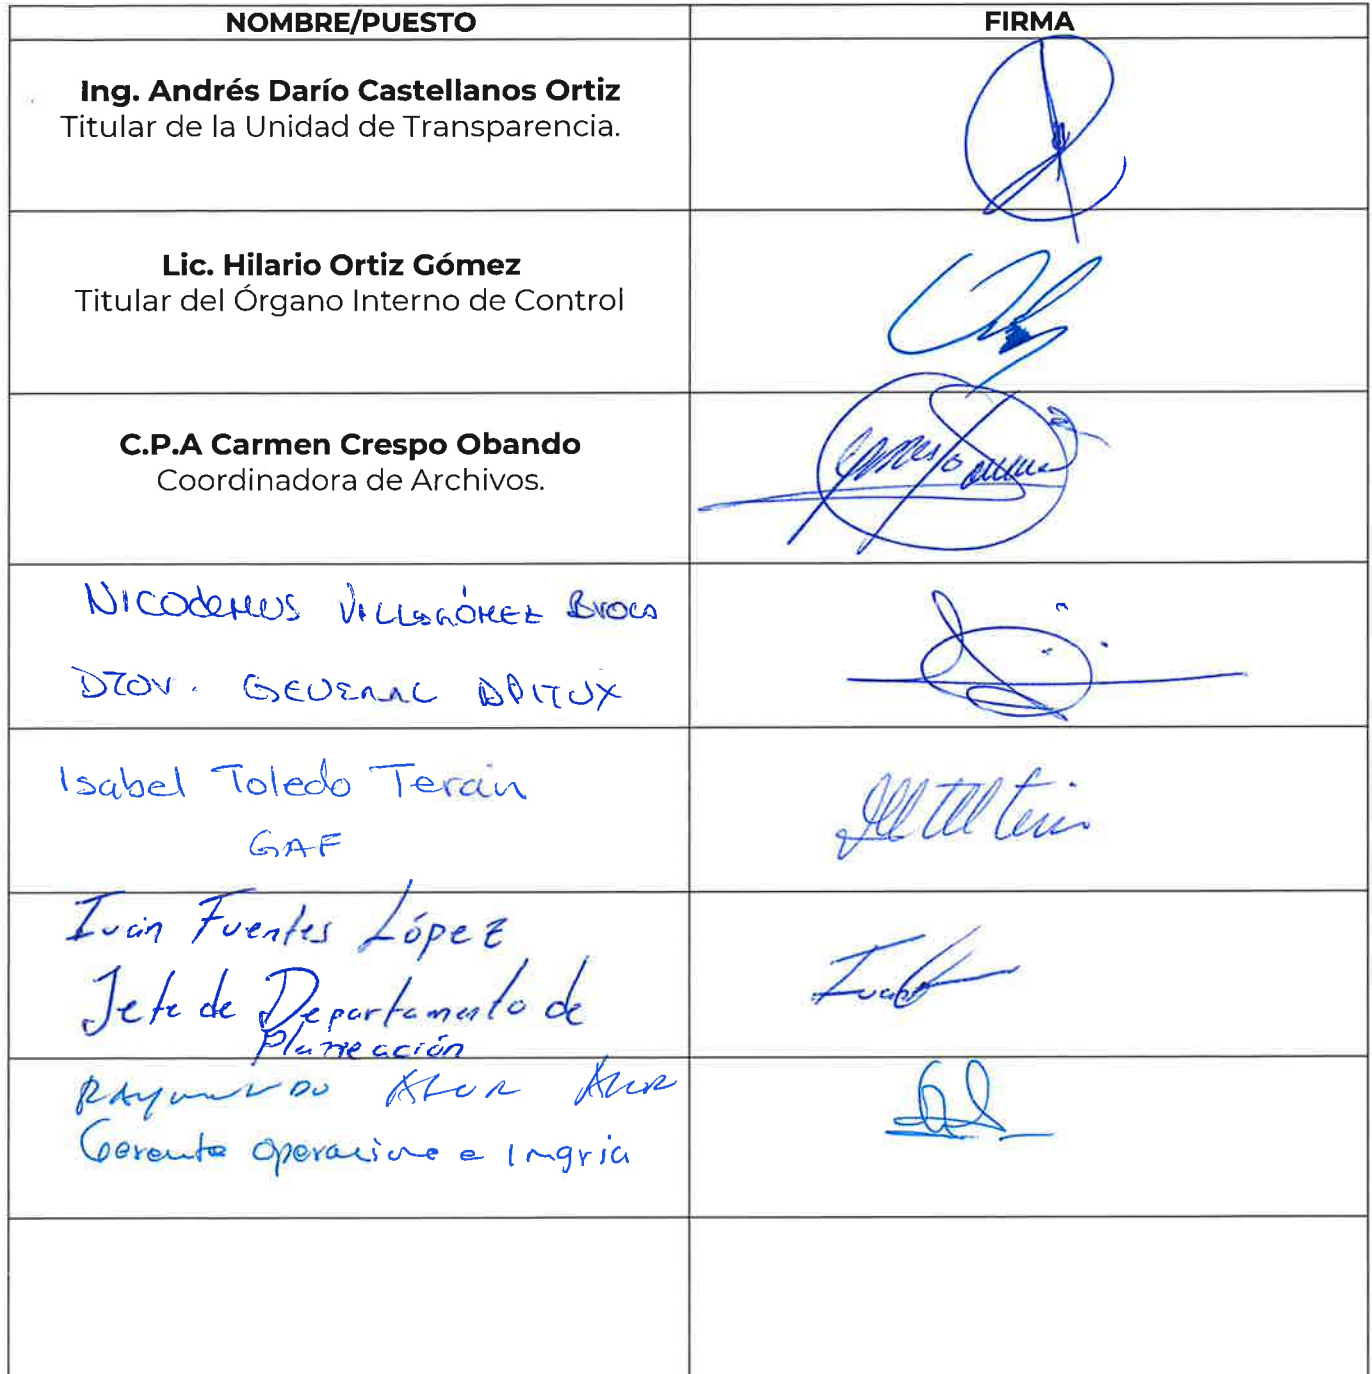 NOMBRE/PUESTO FIRMA
Ing. Andrés Darío Castellanos Ortiz
Titular de la Unidad de Transparencia.
Lic. Hilario Ortiz Gómez
Titular del Órgano Interno de Control
C.P.A Carmen Crespo Obando
Coordinadora de Archivos.
Nicodemus Villagómez Broca
General
Isabel Toledo Terán
GAF
Iván Fuentes López
Jefe de Departamento de
Planeación
Raymundo
Gerente operacione e Ingria